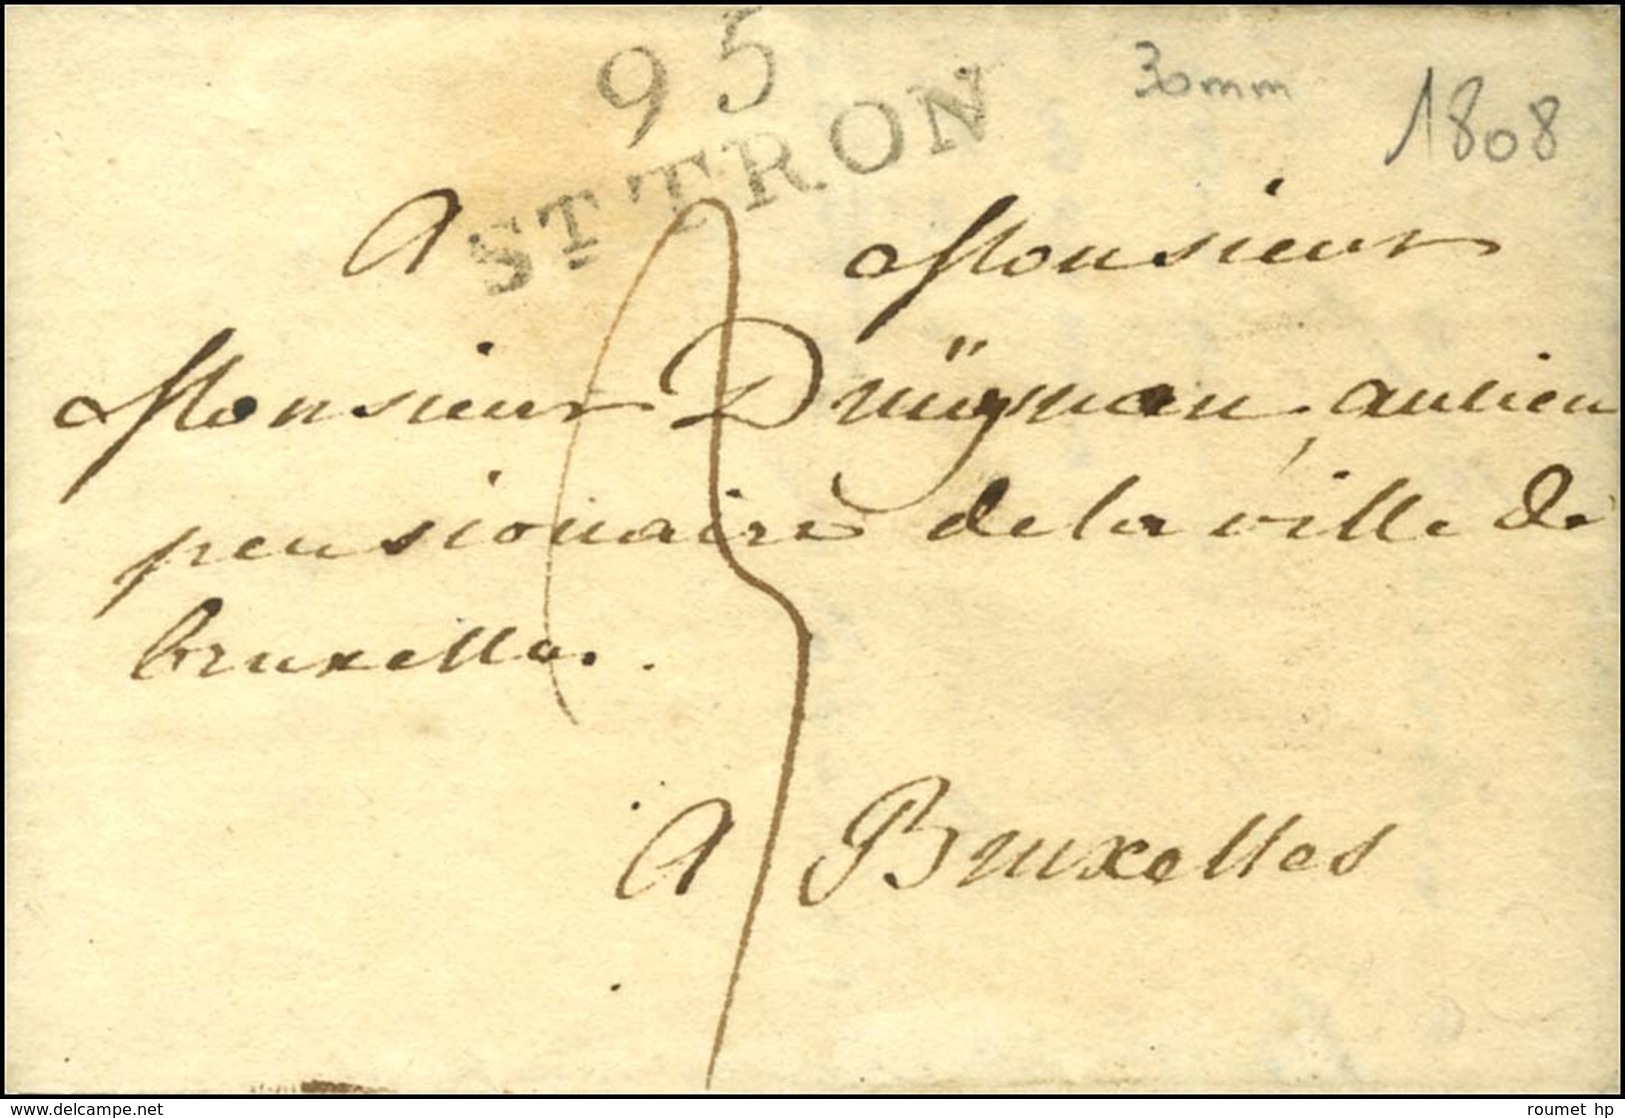 95
ST TRON
30mm
1808
A Monsieur
Monsieur Drüÿman, ancien
pensionaire de la ville de
bruxelles.
A Bruxelles
3
www.delcampe.net
roumet hp